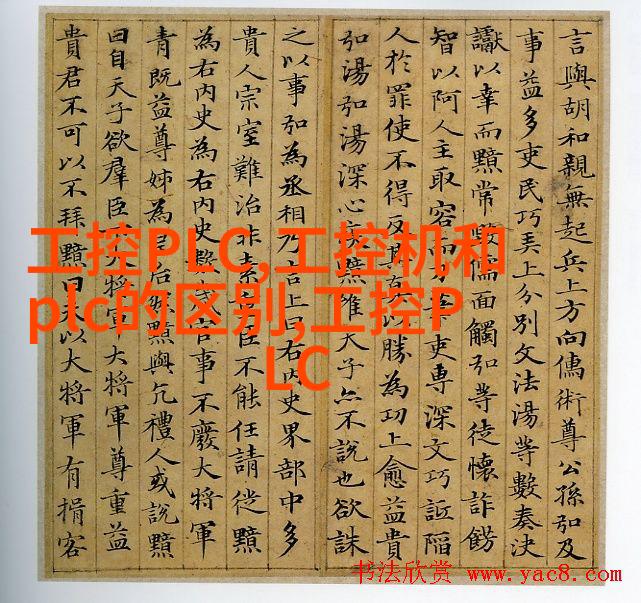 言與胡和親無起兵上方向儒術尊公孫弘及
事益多吏民巧弄上分別文法湯等數奏決
讞以幸而黯常毀儒面觸弘等徒懷詐飾
智以阿人主取容而刀筆吏專深文巧詆陷
人於罪使不得反其真以勝為功上愈益貴
弘湯弘湯深心疾黯雖天子亦不說也欲誅
之以事弘為丞相乃言上曰右内史界部中多
貴人宗室難治非素重臣不能任請徙黯
為右内史為右内史數歲官事不廢大將軍
青既益尊姊為皇后然黯與亢禮人或說黯
曰自天子欲羣臣下大將軍大將軍尊重益
貴君不可以不拜黯曰夫以大將軍有揖客
工控PLC,工控机和
plc的区别,工控P
LC
书法欣赏 www.yac8.com